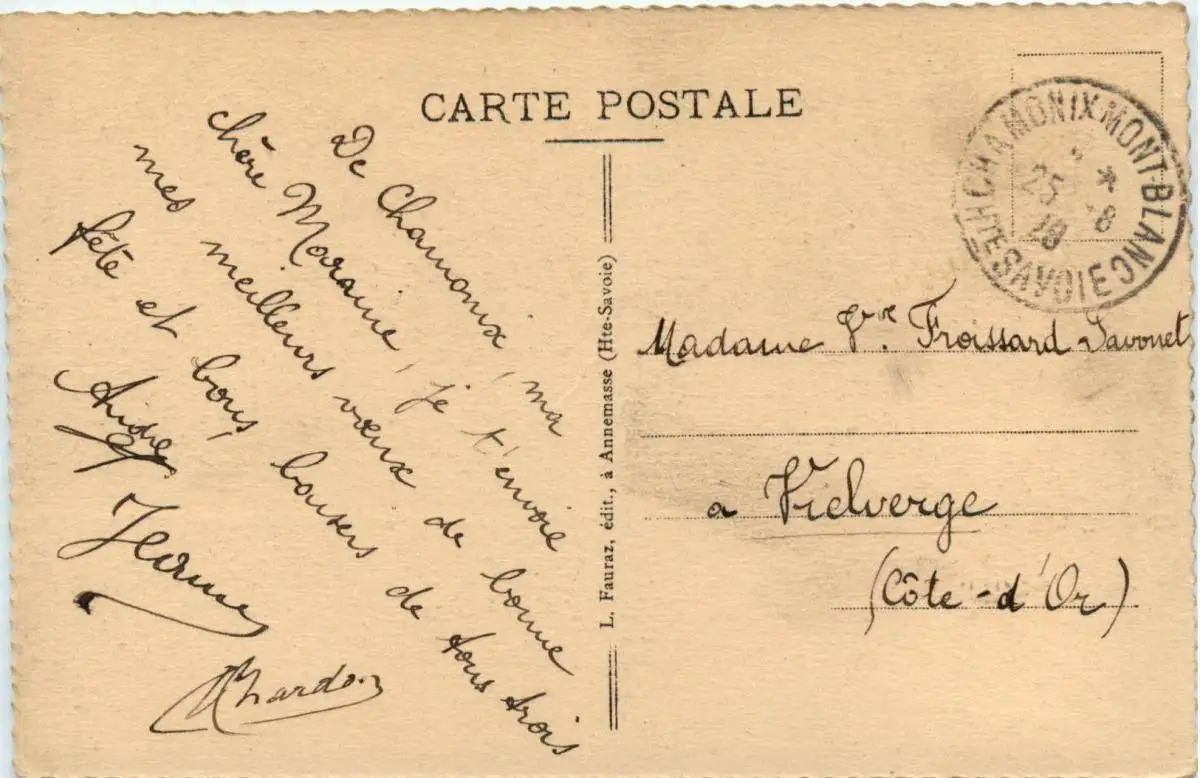 CARTE POSTALE
De Chamonix, ma
chère Marraine, je t'envoie
mes meilleurs vœux de bonne
fête et bons baisers de tous trois
André
Jeanne
Chardon
L. Fauraz, édit., à Annemasse (Hte-Savoie)
CHAMONIX MONT BLANC
25 * 8
HTE SAVOIE
Madame Vve. Froissard Savonet
a Vielverge
(Côte-d'Or)